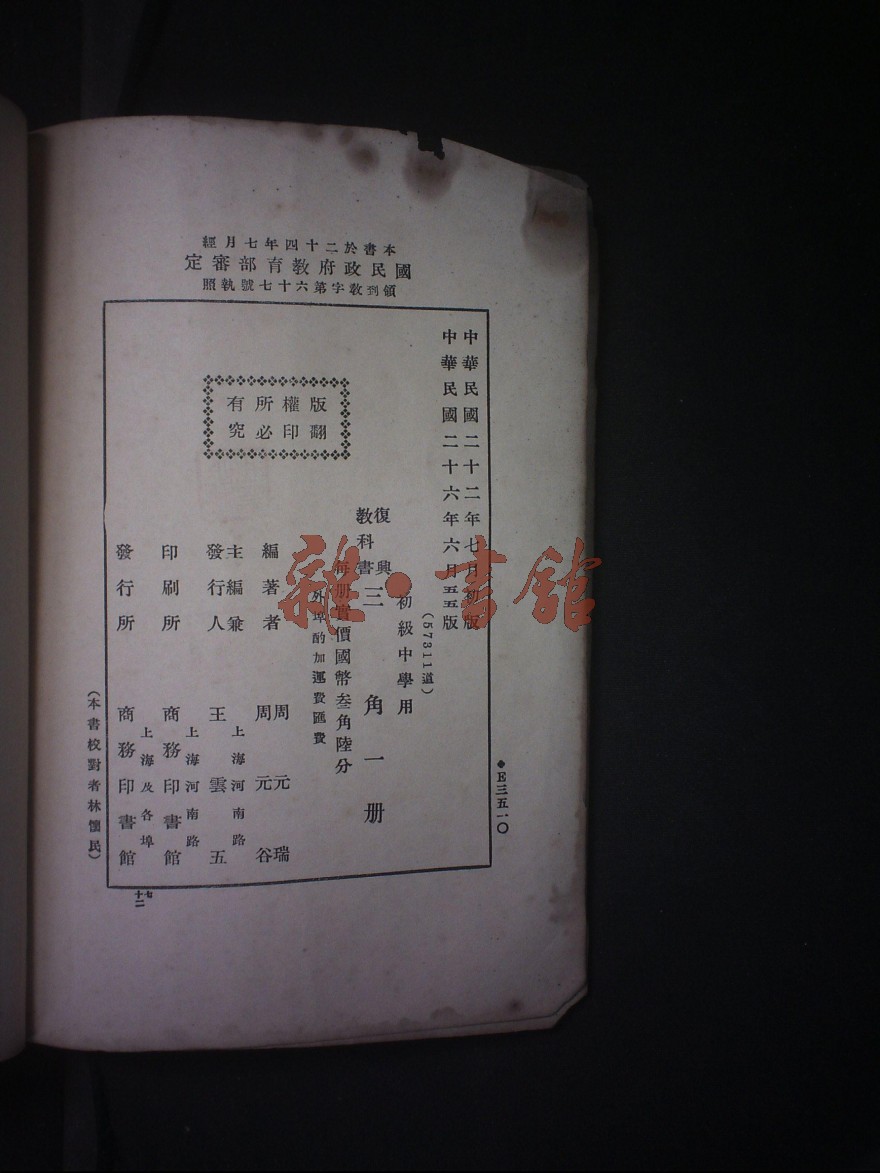 本書於二十四年七月經
國民政府教育部審定
領到教字第六十七號執照
中華民國二十二年七月初版
中華民國二十六年六月五五版
(57311道)
初級中學用
復興
教科書
三角一册
每册實價國幣叁角陸分
外埠酌加運費匯費
版權所有
翻印必究
編著者
周元瑞
周元谷
主編兼
發行人
上海河南路
王雲五
印刷所
上海河南路
商務印書館
發行所
上海及各埠
商務印書館
(本書校對者林懷民)
◆E三五一〇
七
十二
雜·書館